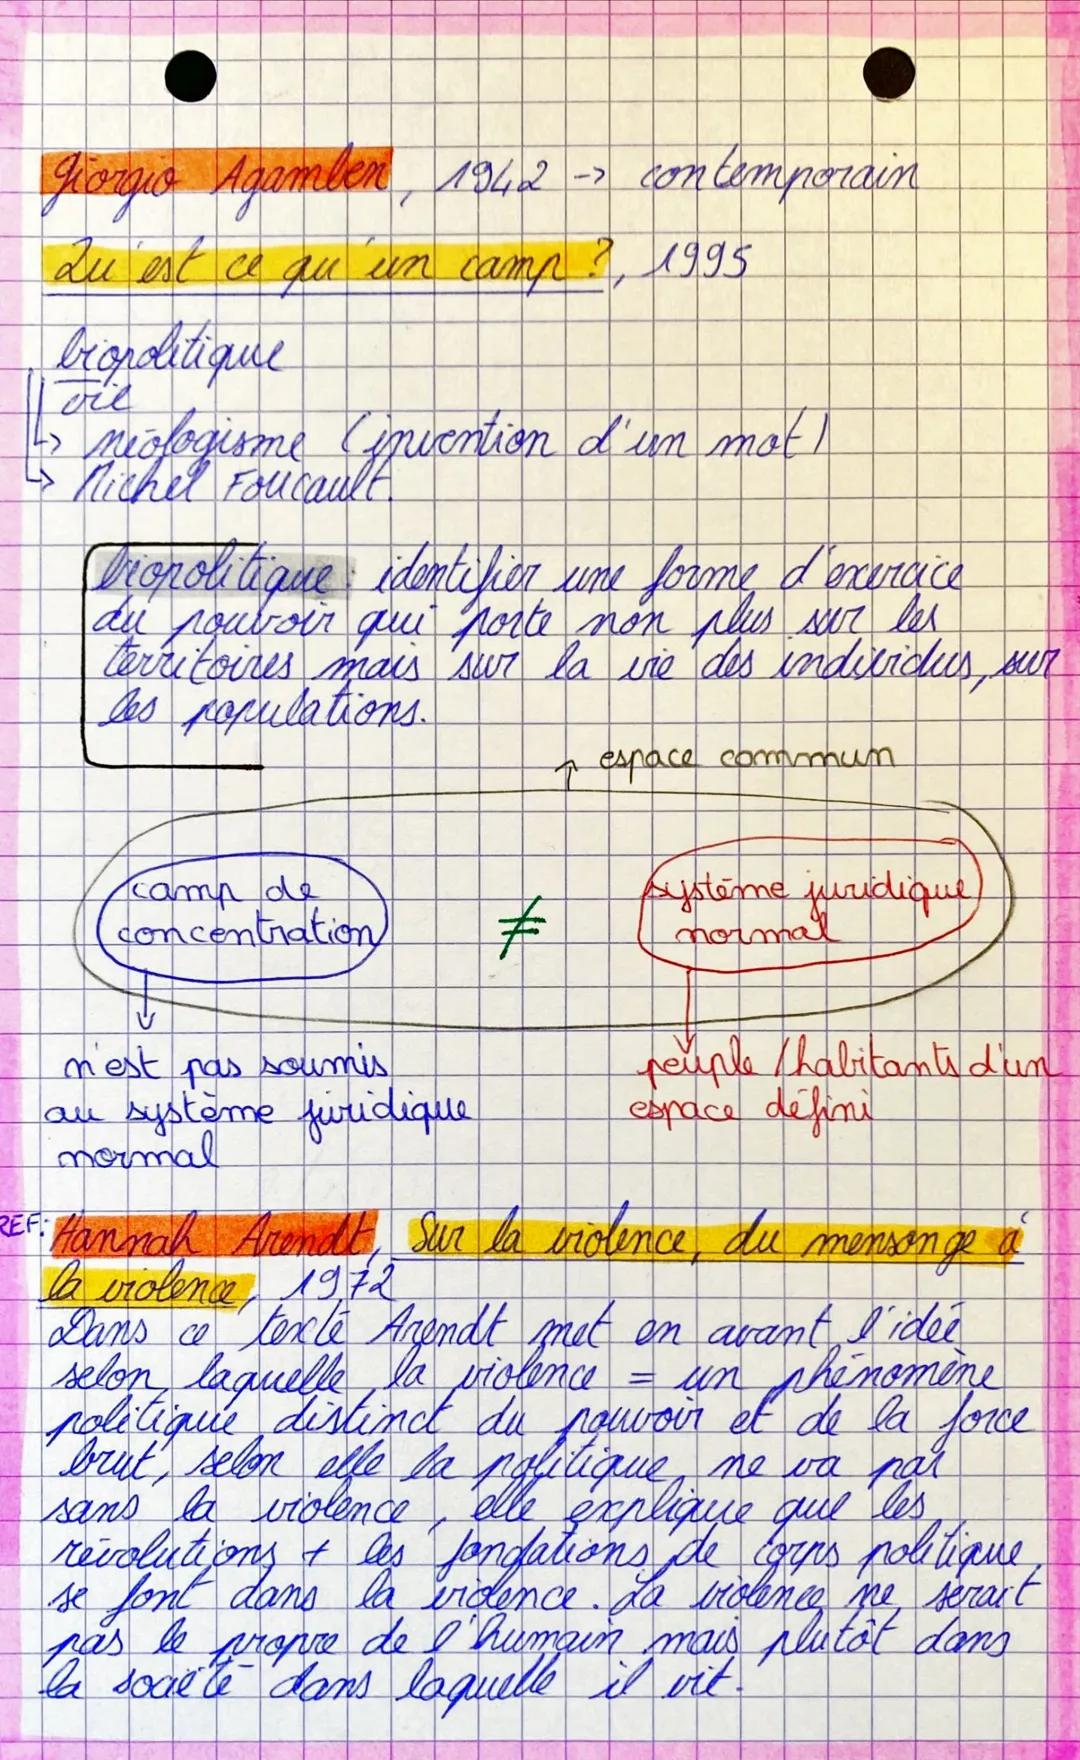 Giorgio Agamben, 1942 -> contemporain
Qu'est ce qu'un camp ?, 1995
biopolitique
vie
néologisme (invention d'un mot)
Michel Foucault.
biopolitique : identifier une forme d'exercice
du pouvoir qui porte non plus sur les
territoires mais sur la vie des individus, sur
les populations.
↑ espace commun
camp de
concentration
≠
système juridique
normal
n'est pas soumis
au système juridique
normal
peuple / habitants d'un
espace défini
REF: Hannah Arendt, Sur la violence, du mensonge à
la violence, 1972
Dans ce texte Arendt met en avant l'idée
selon laquelle la violence = un phénomène
politique distinct du pouvoir et de la force
brut, selon elle la politique ne va pas
sans la violence, elle explique que les
révolutions + les fondations de corps politique
se font dans la violence. La violence ne serait
pas le propre de l'humain mais plutôt dans
la société dans laquelle il vit.